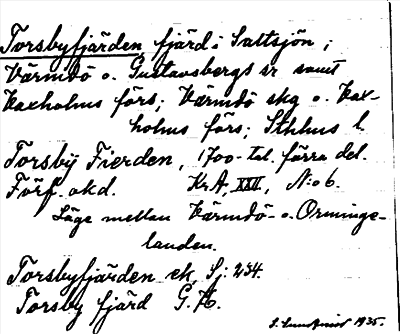 Torsbyfjärden, fjärd i Saltsjön;
Värmdö o. Gustavsbergs sr samt
Vaxholms förs; Värmdö skg o. Vax-
holms förs; Sthlms l.
Torsby Fierden, 1700-tal. förra del.
Förf. okd. Kr.A, XXV, N:o 6.
Läge mellan Värmdö- o. Orminge-
landen.
Torsbyfjärden ek. Sj: 234.
Torsby fjärd G.A.
S. Lundqvist 1935.